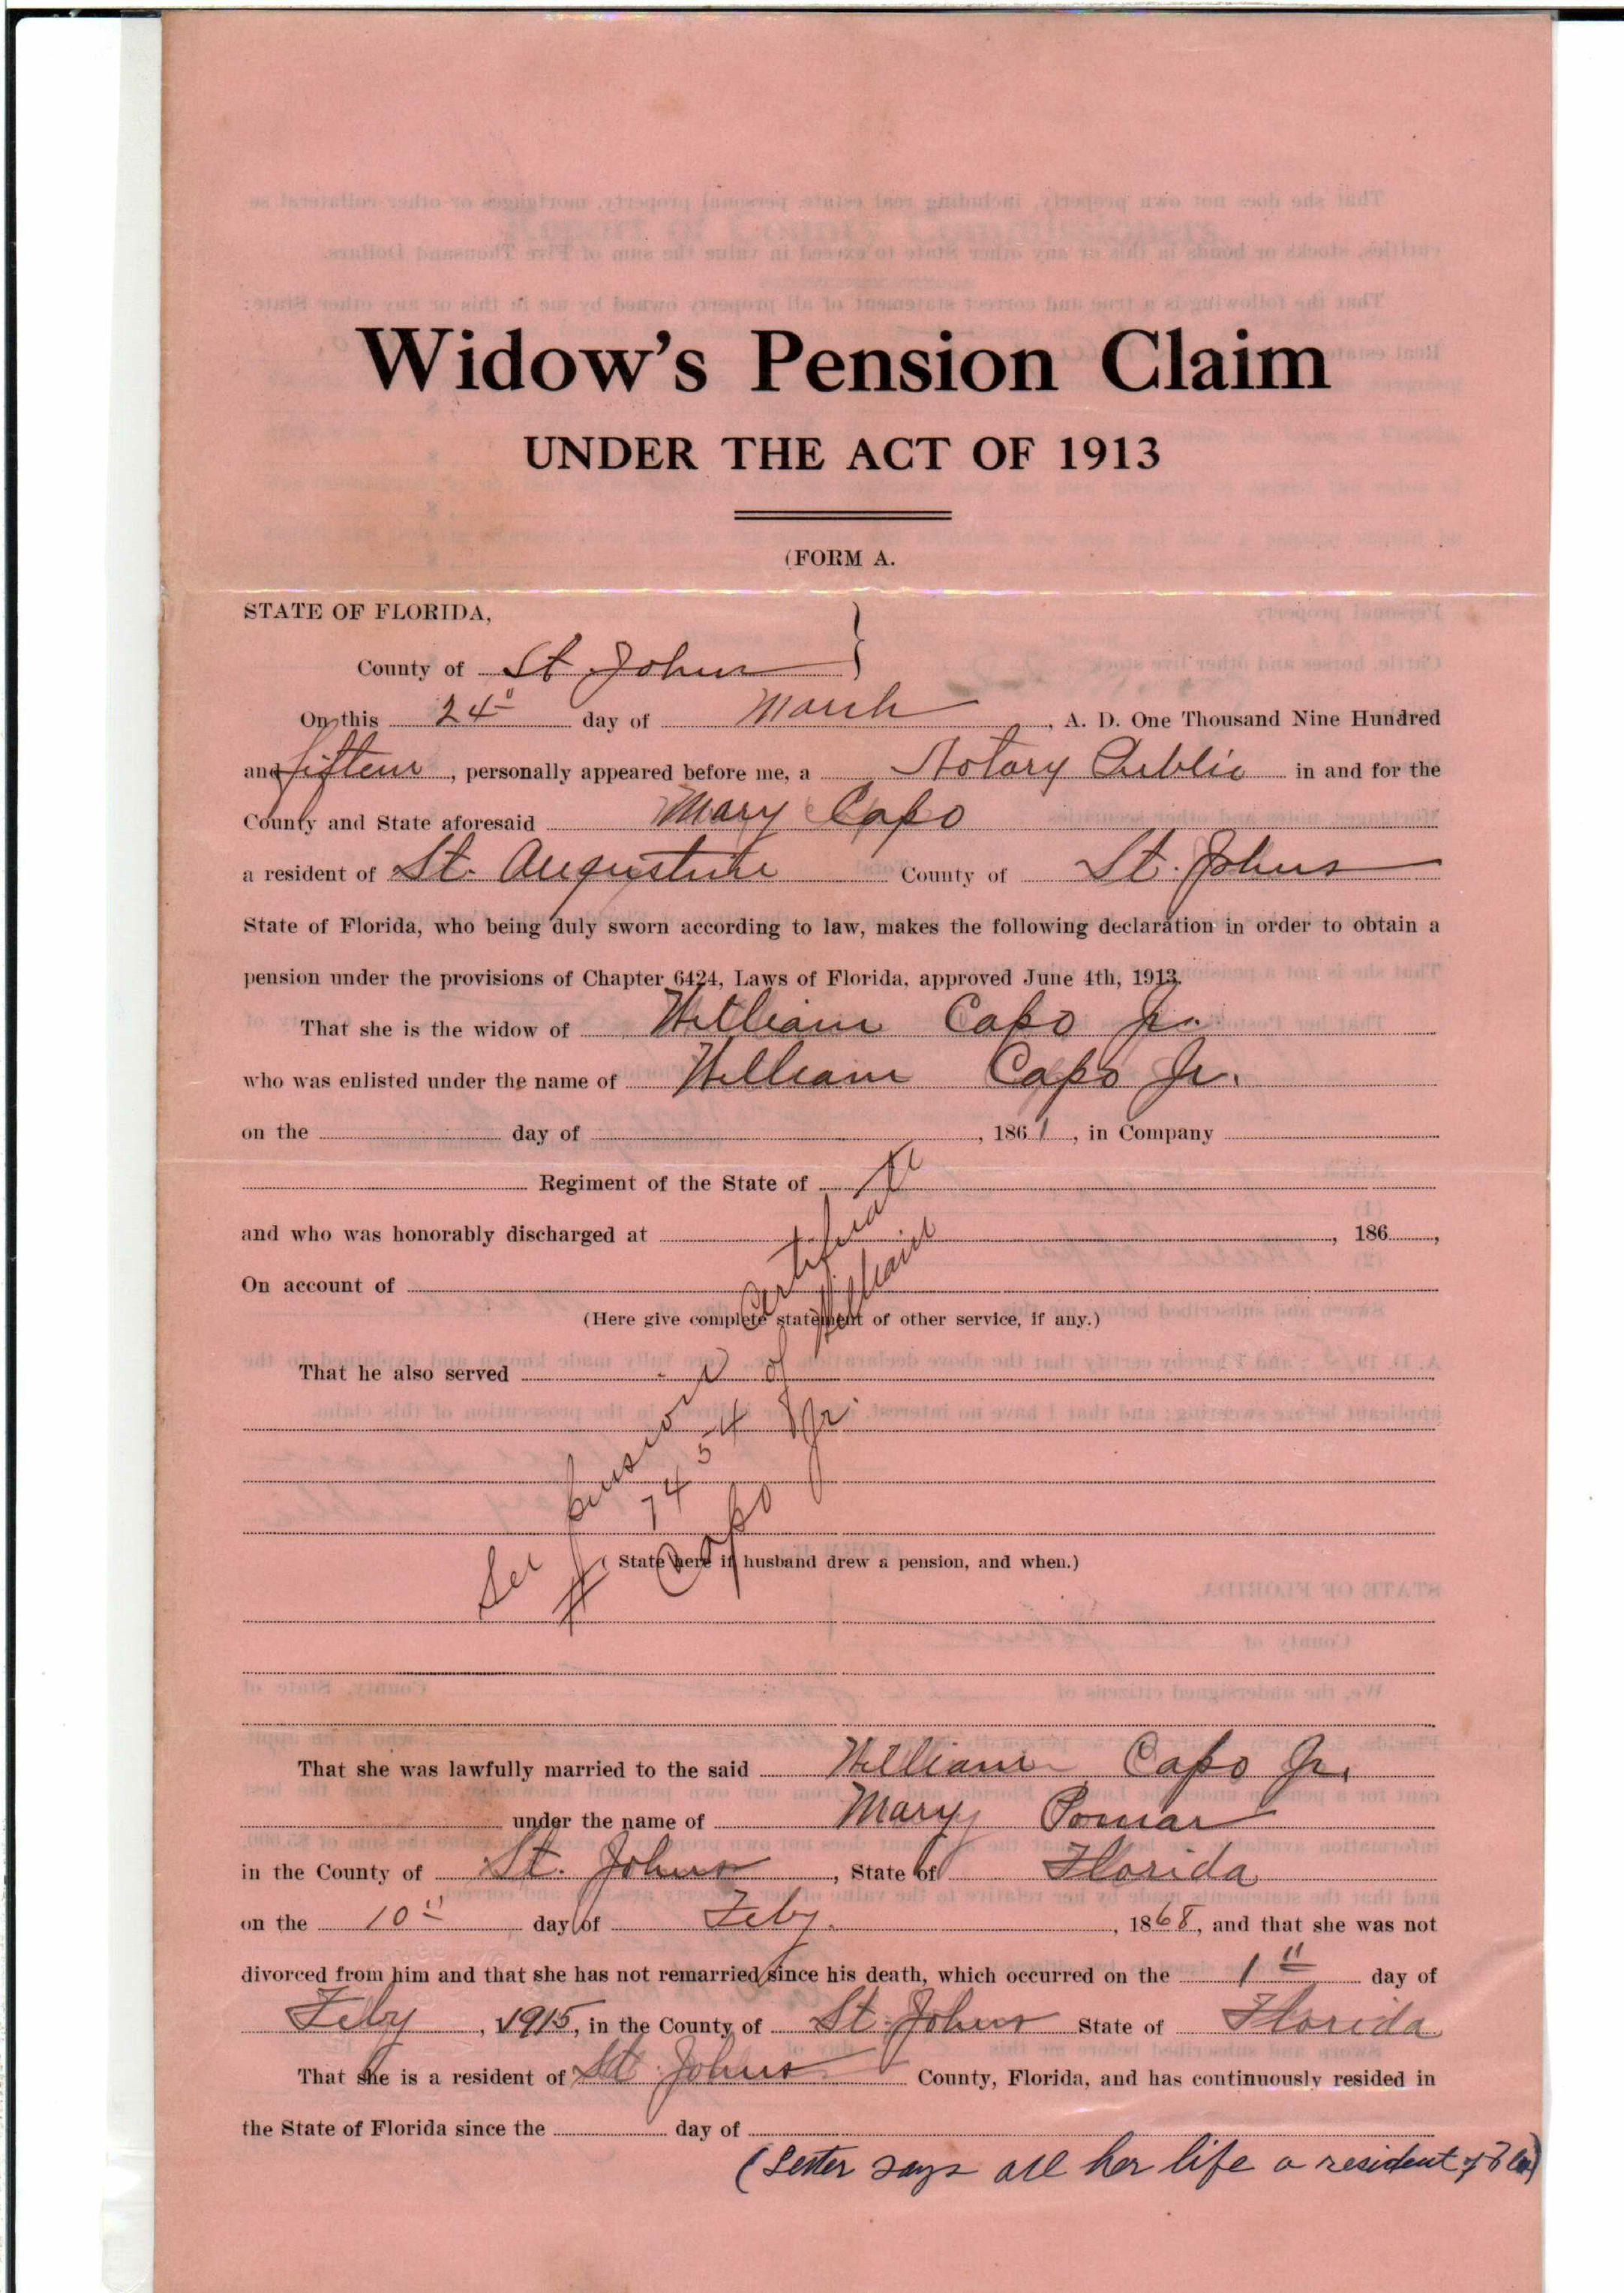 Widow's Pension Claim
UNDER THE ACT OF 1913
(FORM A.
STATE OF FLORIDA,
County of St Johns }
On this 24" day of March, A. D. One Thousand Nine Hundred
and fifteen, personally appeared before me, a Notary Public in and for the
County and State aforesaid Mary Capo
a resident of St. Augustine County of St. Johns
State of Florida, who being duly sworn according to law, makes the following declaration in order to obtain a
pension under the provisions of Chapter 6424, Laws of Florida, approved June 4th, 1913.
That she is the widow of William Capo Jr.
who was enlisted under the name of William Capo Jr.
on the day of , 1861, in Company
Regiment of the State of
and who was honorably discharged at , 186 ,
On account of
(Here give complete statement of other service, if any.)
That he also served
(State here if husband drew a pension, and when.)
See pension Certificate
# 7454 of William
Capo Jr.
That she was lawfully married to the said William Capo Jr.
under the name of Mary Pomar
in the County of St. Johns, State of Florida
on the 10" day of Feby., 1868, and that she was not
divorced from him and that she has not remarried since his death, which occurred on the 1" day of
Feby, 1915, in the County of St. Johns State of Florida
That she is a resident of St. Johns County, Florida, and has continuously resided in
the State of Florida since the day of
(Letter says all her life a resident of Fla)